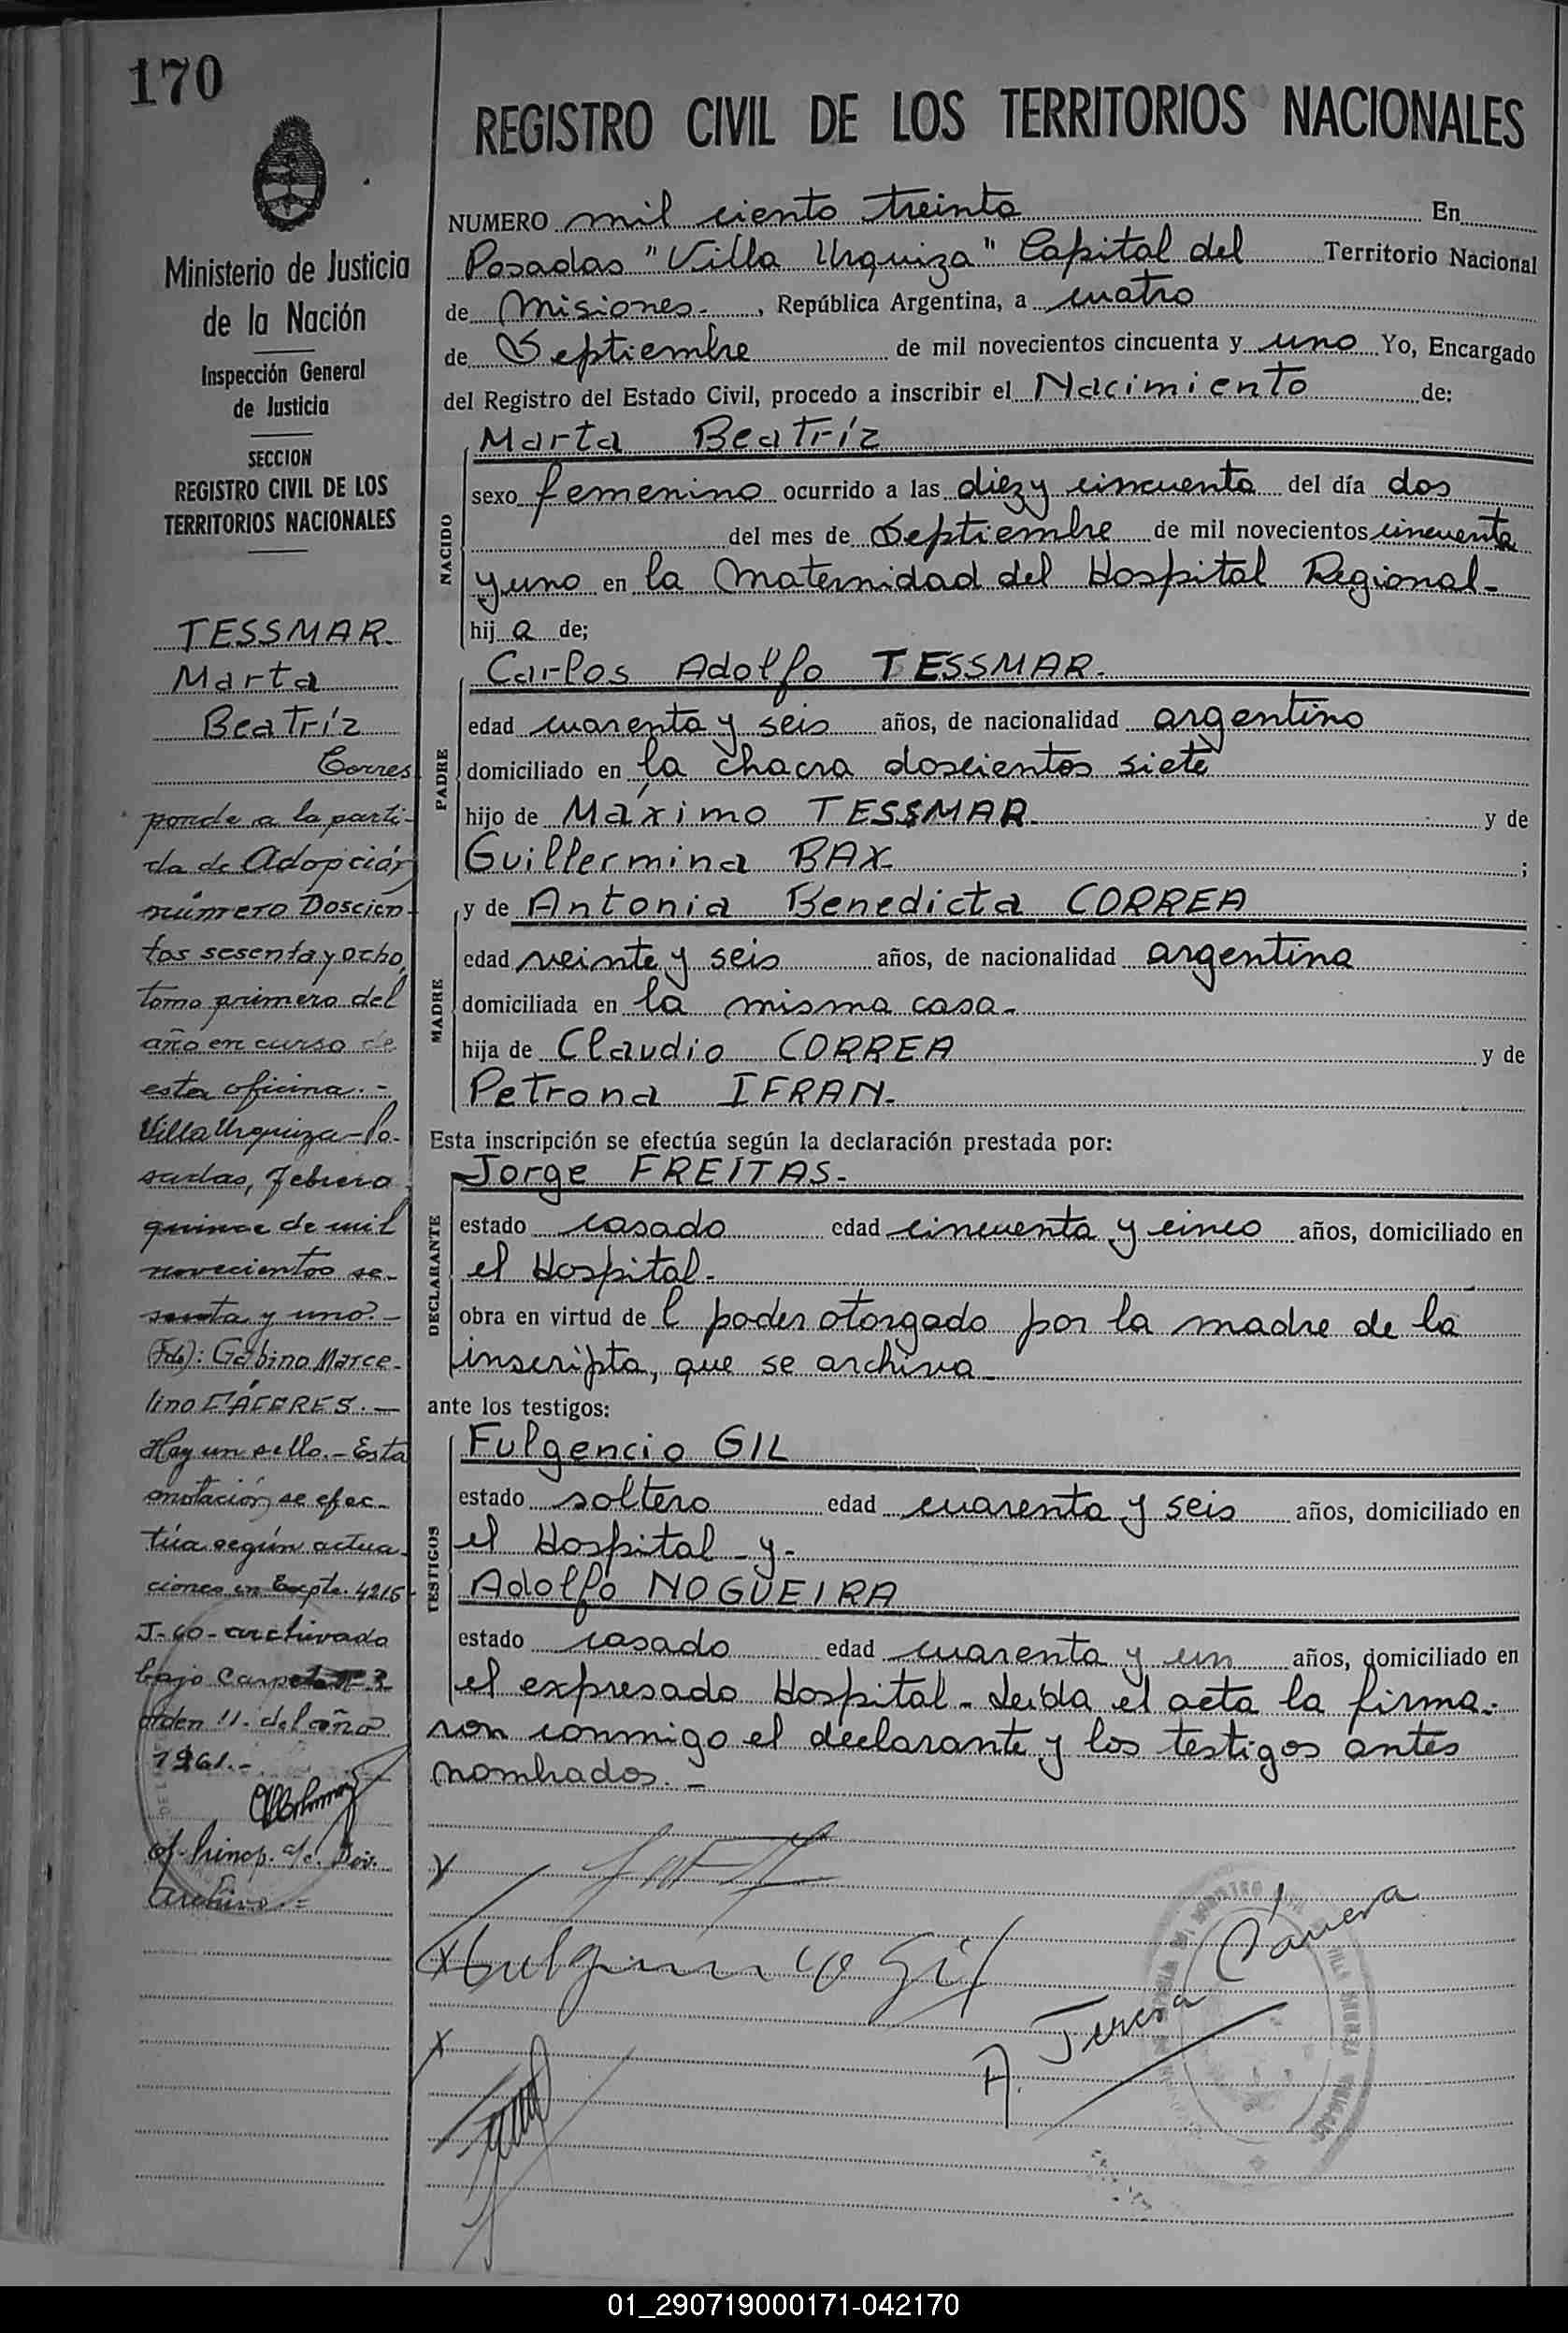 170
REGISTRO CIVIL DE LOS TERRITORIOS NACIONALES
Ministerio de Justicia
de la Nación
Inspección General
de Justicia
SECCION
REGISTRO CIVIL DE LOS
TERRITORIOS NACIONALES
TESSMAR.
Marta
Beatríz
Corres
ponde a la parti-
da de Adopción
número Doscien-
tos sesenta y ocho,
tomo primero del
año en curso de
esta oficina.-
Villa Urquiza-Po-
sadas, febrero
quince de mil
novecientos se-
senta y uno.-
(Fdo): Gabino Marce-
lino CÁCERES.-
Hay un sello.-Esta
anotación, se efec-
túa según actua-
ciones en Expte. 4215-
J-60-archivado
bajo Carpeta Nº 2
orden 11. del año
1961.-
of. Princp. a/c. Div.
Archivo.=
NUMERO mil ciento treinta En
Posadas "Villa Urquiza" Capital del Territorio Nacional
de Misiones-, República Argentina, a cuatro
de Septiembre de mil novecientos cincuenta y uno Yo, Encargado
del Registro del Estado Civil, procedo a inscribir el Nacimiento de:
NACIDO
Marta Beatríz
sexo femenino ocurrido a las diez y cincuenta del día dos
del mes de Septiembre de mil novecientos cincuenta
y uno en la Maternidad del Hospital Regional-
hij a de;
PADRE
Carlos Adolfo TESSMAR.
edad cuarenta y seis años, de nacionalidad argentino
domiciliado en la chacra doscientos siete
hijo de Máximo TESSMAR y de
Guillermina BAX- ;
MADRE
y de Antonia Benedicta CORREA
edad veinte y seis años, de nacionalidad argentina
domiciliada en la misma casa-
hija de Claudio CORREA y de
Petrona IFRAN-
Esta inscripción se efectúa según la declaración prestada por:
DECLARANTE
Jorge FREITAS-
estado casado edad cincuenta y cinco años, domiciliado en
el Hospital-
obra en virtud de l poder otorgado por la madre de la
inscripta, que se archiva-
ante los testigos:
TESTIGOS
Fulgencio GIL
estado soltero edad cuarenta y seis años, domiciliado en
el Hospital -y-
Adolfo NOGUEIRA
estado casado edad cuarenta y un años, domiciliado en
el expresado Hospital- Leída el acta la firma-
ron conmigo el declarante y los testigos antes
nombrados.-
Fulgencio Gil
A. Teresa
01_290719000171-042170